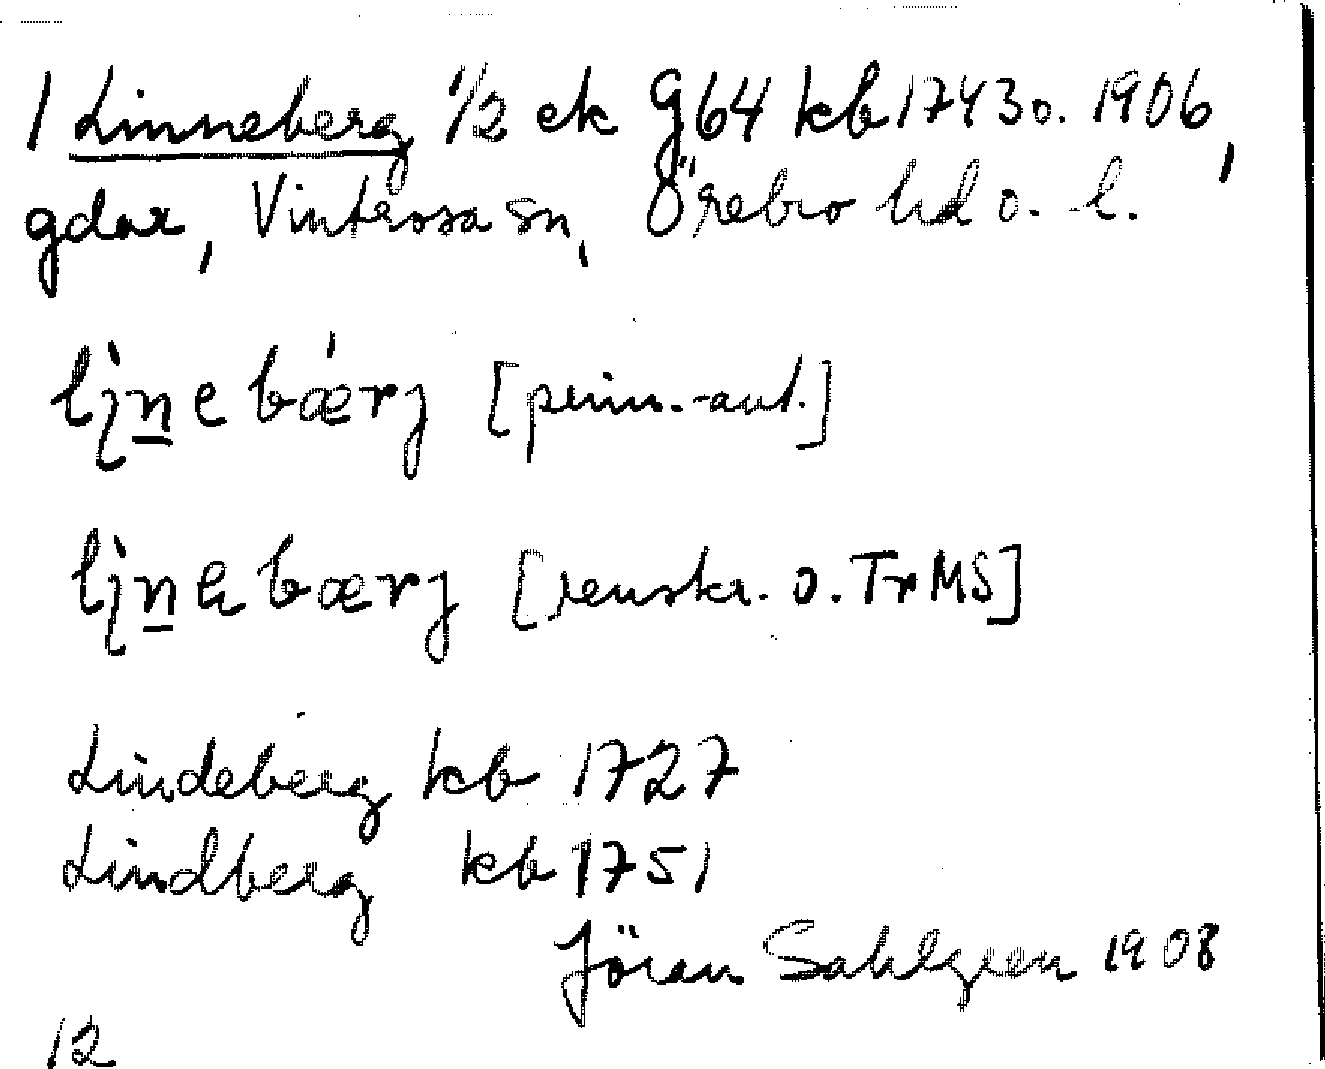 1 Linneberg 1/2 ek G64 kb 1743 o. 1906,
gdar, Vintrosa sn, Örebro hd o. l.
lįǹ̲ebǽrj [prim.-aut.]
lįǹ̲ebærj [renskr. o. Tr MS]
Lindeberg kb 1727
Lindberg kb 1751
Jöran Sahlgren 1908
12